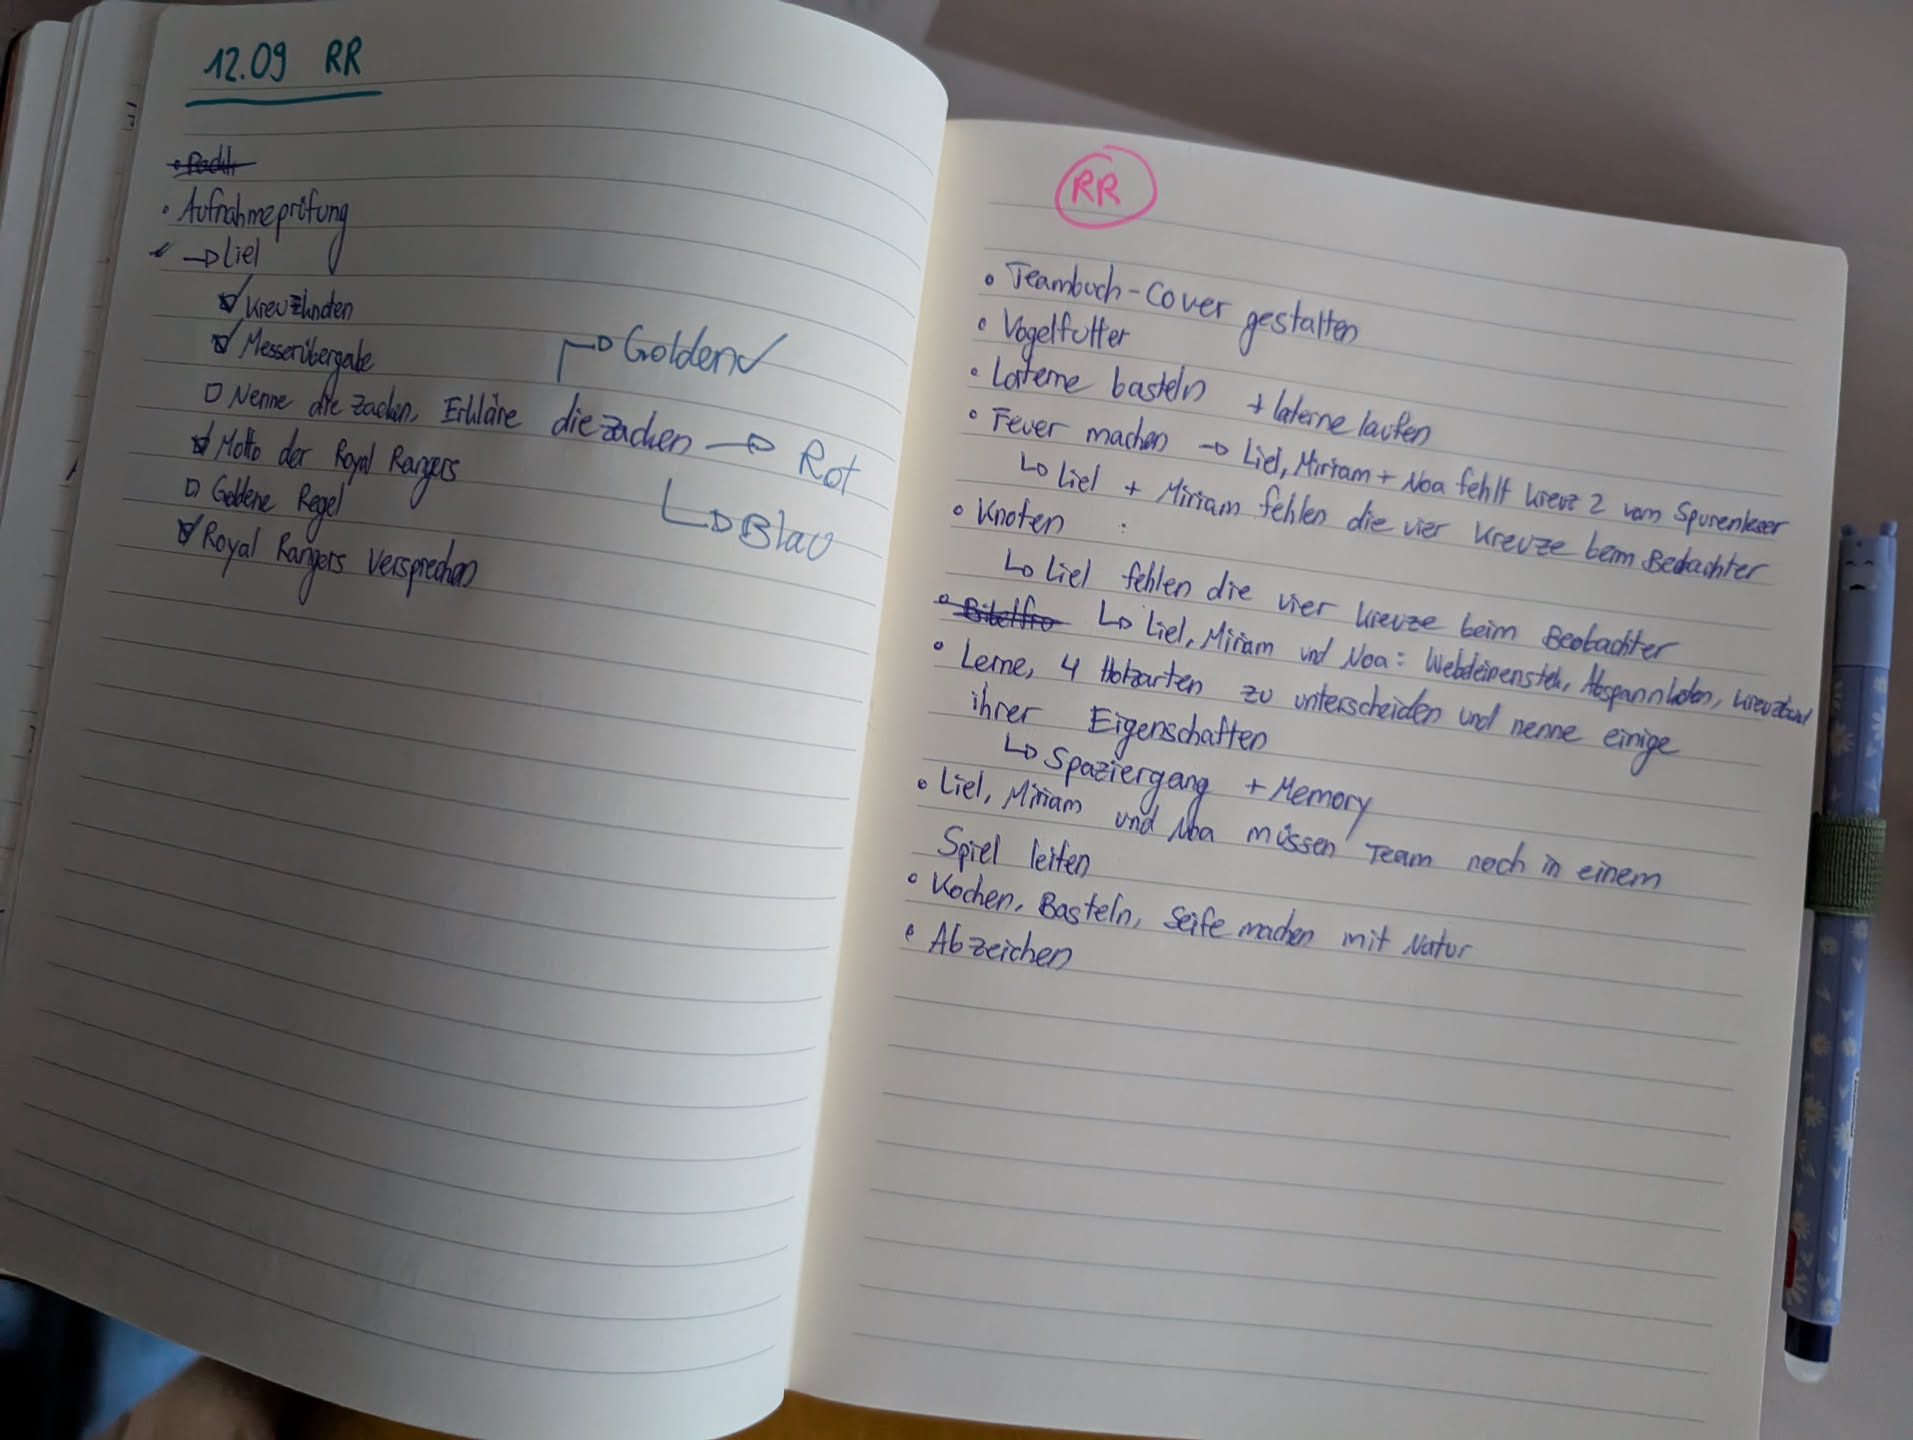 12.09 RR
• Aufnahmeprüfung
→ Liel
Kreuzknoten
Messerübergabe
→ Golden ✓
Nenne die Zacken, Erkläre die zacken → Rot
Motto der Royal Rangers
→ Blau
Goldene Regel
Royal Rangers versprechen
RR
• Teambuch-Cover gestalten
• Vogelfutter
• Laterne basteln + laterne laufen
• Feuer machen → Liel, Miriam + Noa fehlt kreuz 2 vom Spurenleser
↳ Liel + Miriam fehlen die vier kreuze beim Beobachter
• Knoten :
↳ Liel fehlen die vier kreuze beim Beobachter
↳ Liel, Miriam und Noa: Abspannknoten, kreuzbund
• Lerne, 4 Holzarten zu unterscheiden und nenne einige
ihrer Eigenschaften
↳ Spaziergang + Memory
• Liel, Miriam und Noa müssen Team noch in einem
Spiel leiten
• Kochen, Basteln, Seife machen mit Natur
• Abzeichen